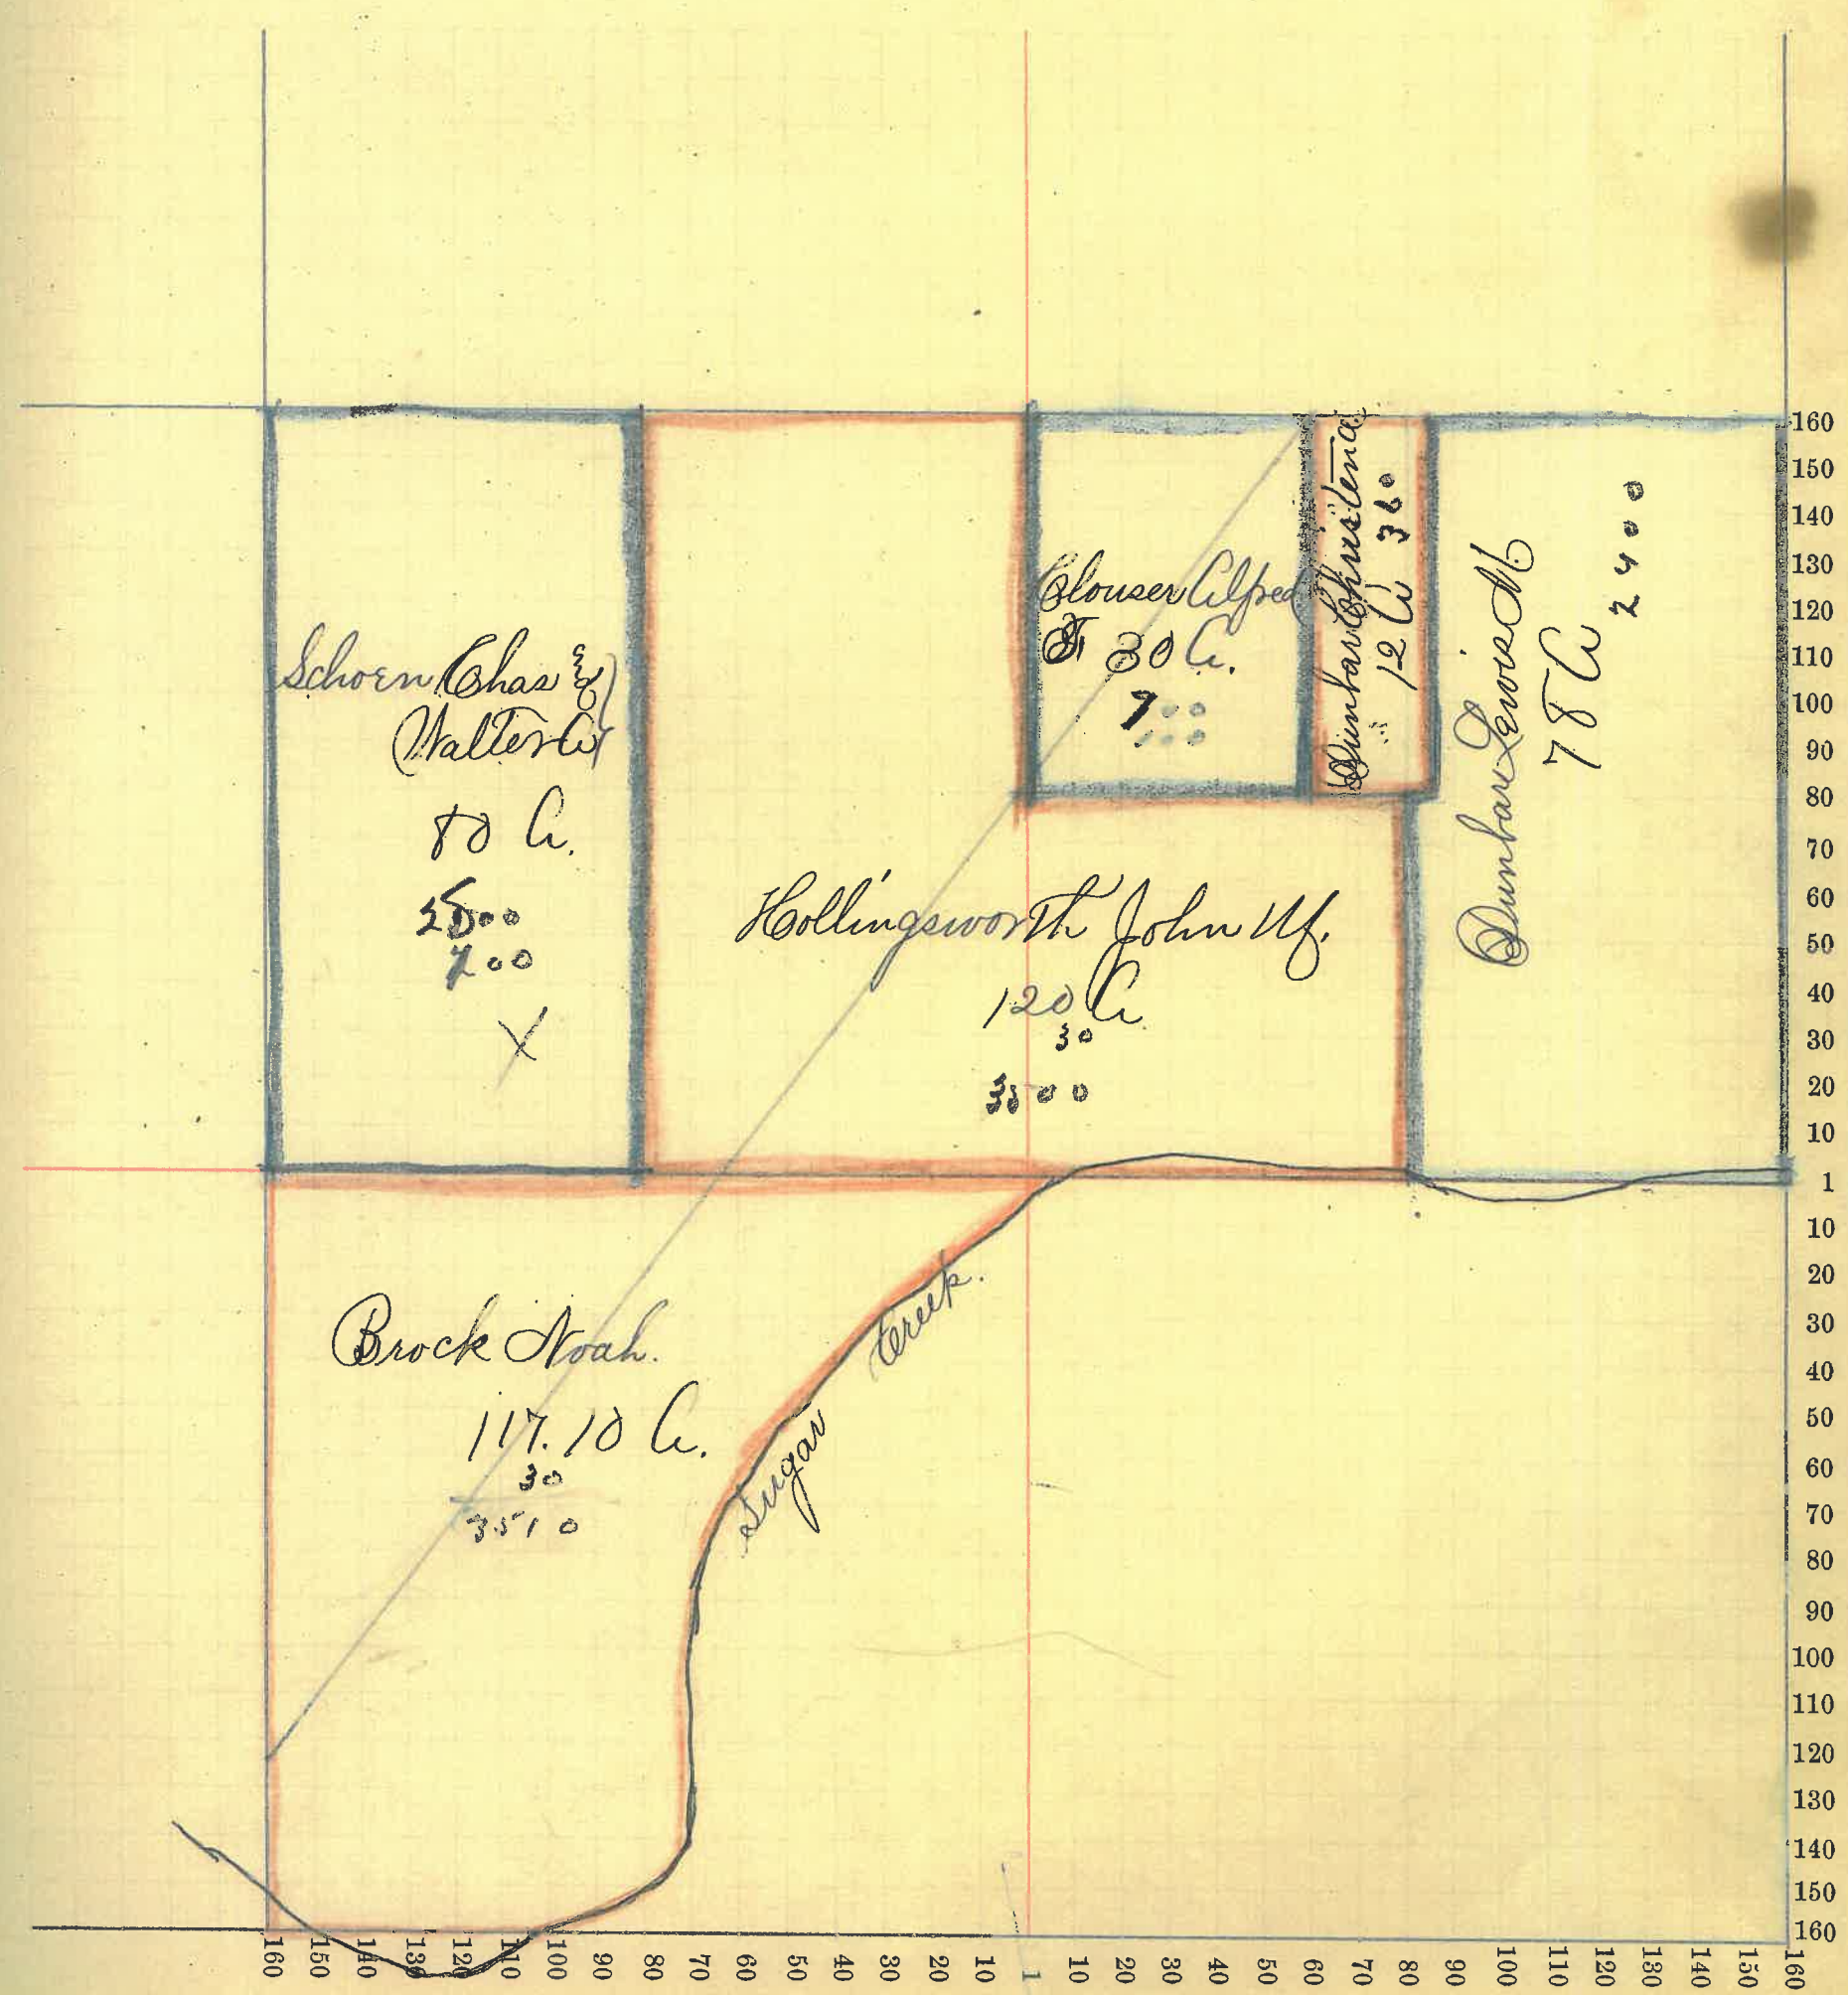 Schoen Chas &
Walter A
80 A.
200
X
Clouser Alfred
F 30 A.
Dunbar Christena
12 A 360
Dunbar Lewis M
78 A
2400
Hollingsworth John M.
120 A
30
Brock Noah.
117.10 A.
30
3510
Sugar Creek.
160
150
140
130
120
110
100
90
80
70
60
50
40
30
20
10
1
10
20
30
40
50
60
70
80
90
100
110
120
130
140
150
160
160 150 140 130 120 110 100 90 80 70 60 50 40 30 20 10 1 10 20 30 40 50 60 70 80 90 100 110 120 130 140 150 160